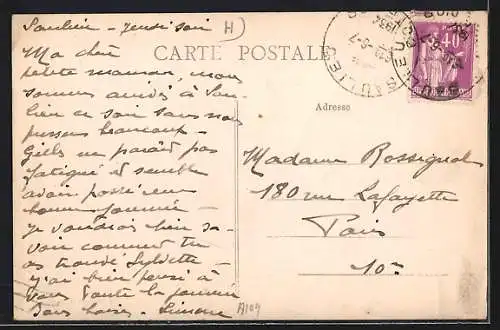 Saulieu - jeudi soir
H
CARTE POSTALE
Ma chère
petite maman, nous
sommes arrivés à Sau-
lieu ce soir sans nous
presser beaucoup -
Gilles ne paraît pas
fatigué et semble
avoir passé une
bonne journée -
je voudrais bien sa-
voir comment tu
as trouvé Sylvette -
j'ai bien pensé à
vous toute la journée
Bons baisers - Simone
A104
Adresse
Madame Rossignol
180 rue Lafayette
Paris
10e
SAULIEU
1934
40